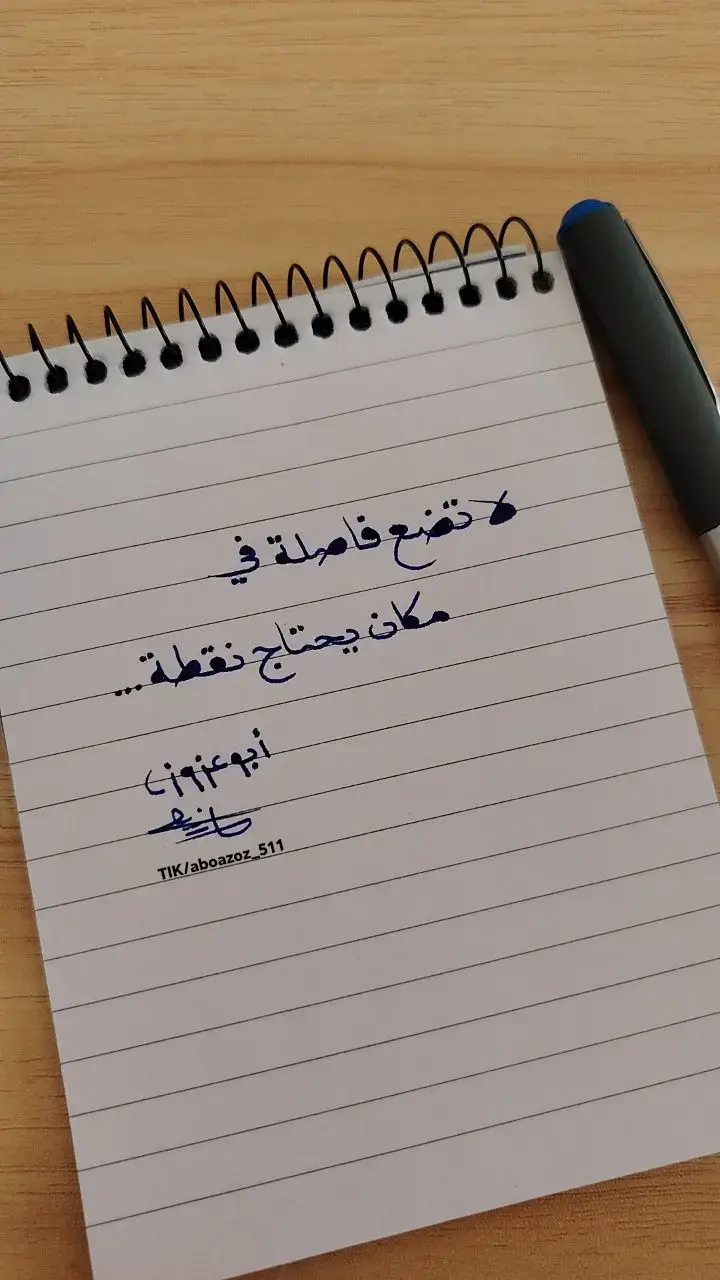 لا تضع فاصلة في
مكان يحتاج نقطة...
أبو عزوز
TIK/aboazoz_511